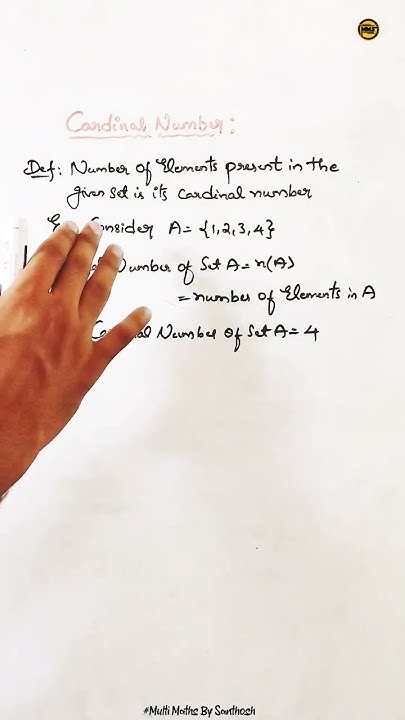 Cardinal Number:
Def: Number of Elements present in the
given set is its cardinal number
Consider A = {1,2,3,4}
Number of Set A = n(A)
= number of Elements in A
Number of Set A = 4
#Multi Maths By Santhosh